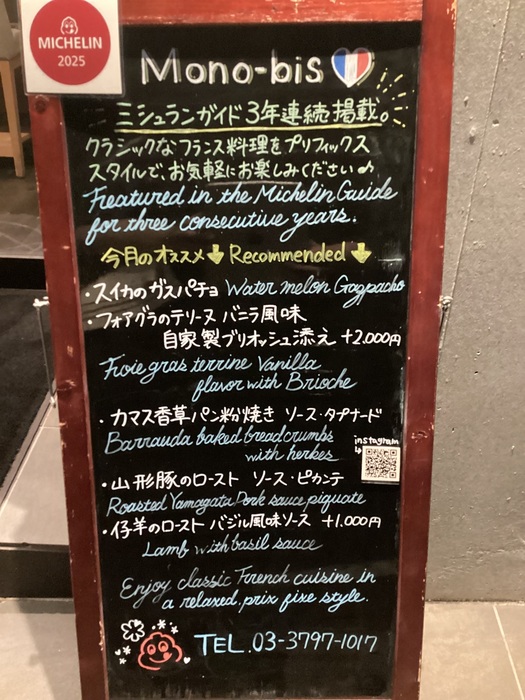 MICHELIN
2025
Mono-bis
ミシュランガイド3年連続掲載。
クラシックなフランス料理をプリフィックス
スタイルで、お気軽にお楽しみください♪
Freatured in the Michelin Guide
for three consecutive years.
今月のオススメ↓Recommended↓
・スイカのガスパチョ Water melon Gazpacho
・フォアグラのテリーヌ バニラ風味
自家製ブリオッシュ添え +2.000円
Froie gras terrine Vanilla
flavor with Brioche
・カマス香草パン粉焼き ソース・タプナード
Barrauda baked breadcrumbs
with herbes
instagram
・山形豚のロースト ソース・ピカンテ
Roasted Yamagata Pork sauce piquate
・仔羊のロースト バジル風味ソース +1.000円
Lamb with basil sauce
Enjoy classic French cuisine in
a relaxed, prix fixe style.
TEL.03-3797-1017